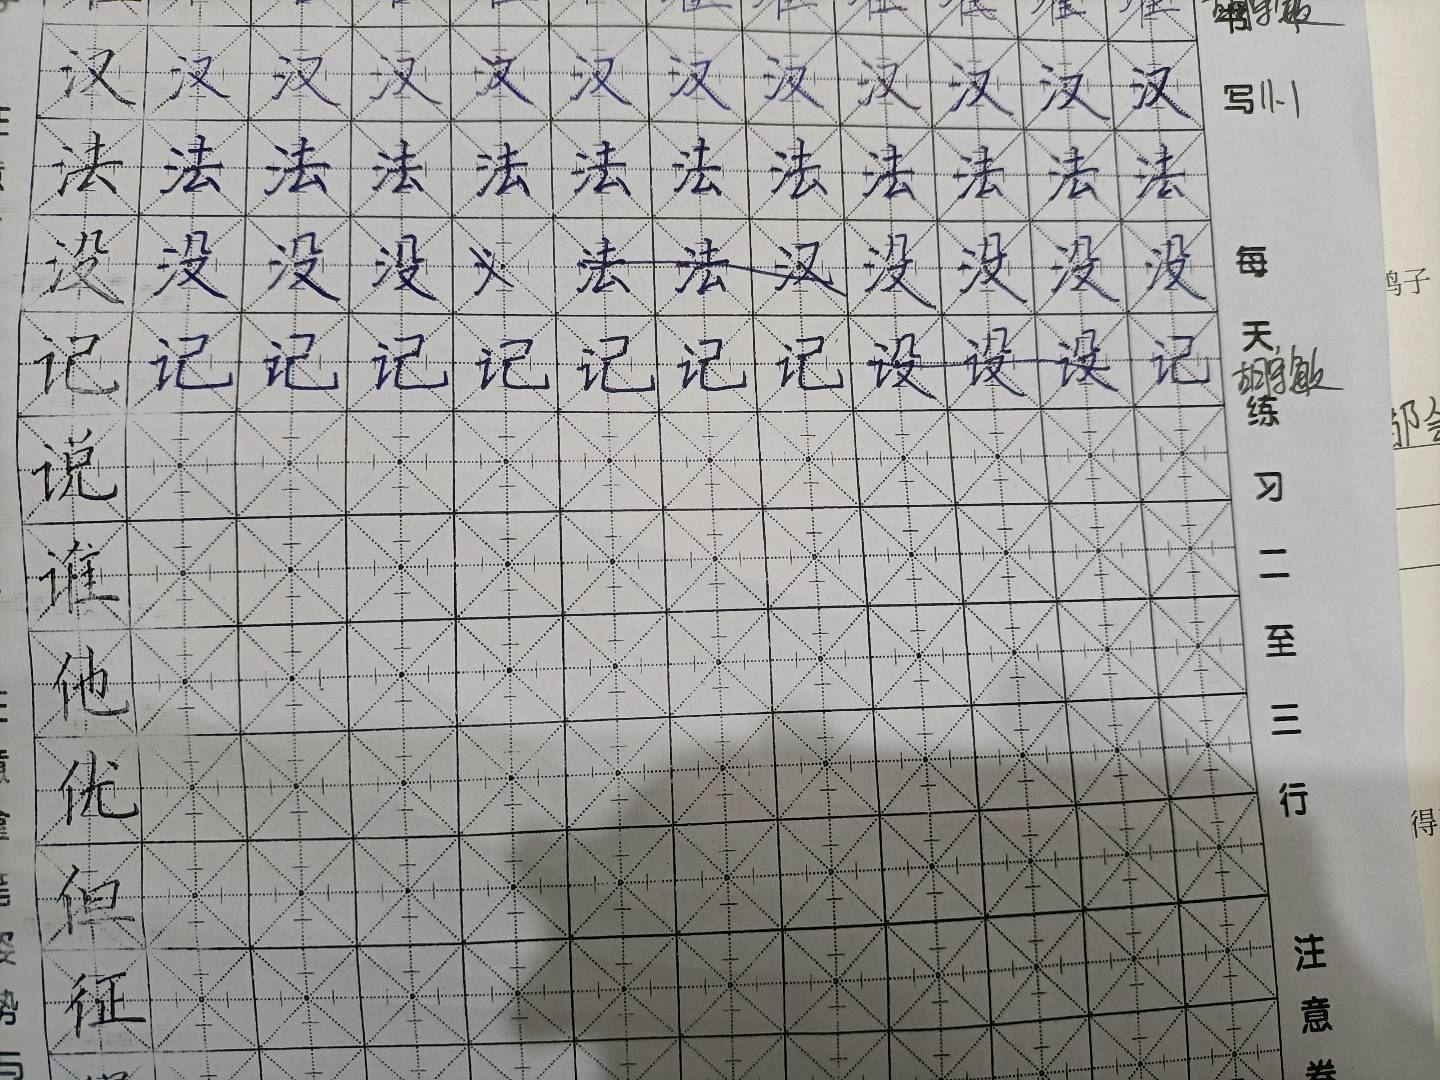 汉 汉 汉 汉 汉 汉 汉 汉 汉 汉 汉 汉
法 法 法 法 法 法 法 法 法 法 法 法
没 没 没 没 法 法 汉 没 没 没 没
记 记 记 记 记 记 记 记 设 设 设 记
说
谁
他
优
但
征
写 11-1
每
天
练
习
二
至
三
行
注
意
鸡子
得